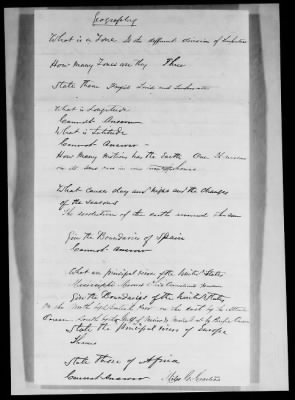 Geography
What is a Zone Is the different division of
How Many Zones are they Three
State Them Frigid Torid and
What is Longitude
Cannot Answer
What is Latitude
Cannot Answer -
How Many motions has the Earth One It moves
on its
What cause day and night and the changes
of the seasons
The revolution of the earth around the sun
Give the Boundaries of Spain
Cannot Answer
What are principal rivers of the United States
Mississippi
Give the Boundaries of the United States
on the North by on the East by the
Ocean South by Gulf of Mexico West by Pacific Ocean
State the Principal rivers of Europe
State those of Africa
Cannot Answer Miss C.